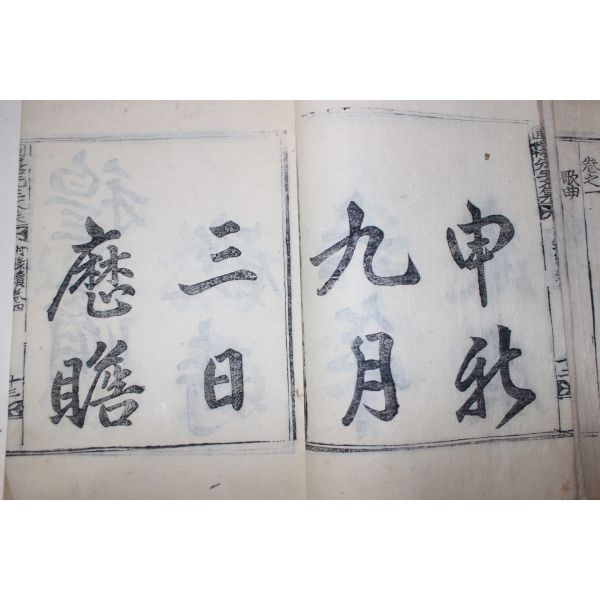 卷之一
歌曲
申秋
九月
三日
歷瞻